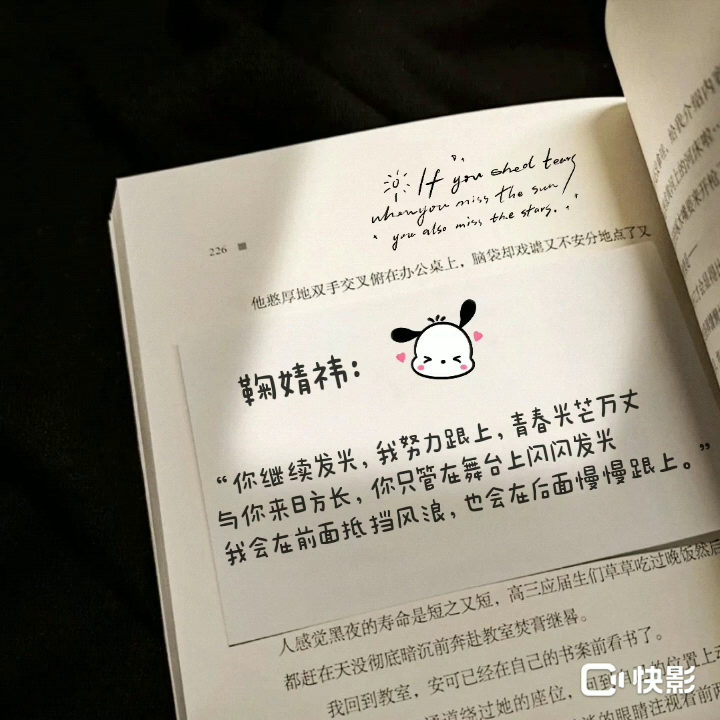 If you shed tears
when you miss the sun,
you also miss the stars.
226
他憨厚地双手交叉俯在办公桌上，脑袋却戏谑又不安分地点了又
鞠婧祎：
“你继续发光，我努力跟上，青春光芒万丈
与你来日方长，你只管在舞台上闪闪发光
我会在前面抵挡风浪，也会在后面慢慢跟上。”
人感觉黑夜的寿命是短之又短，高三应届生们草草吃过晚饭然后
都赶在天没彻底暗沉前奔赴教室焚膏继晷。
我回到教室，安可已经在自己的书案前看书了。
绕过她的座位，
的眼睛注视着前
快影